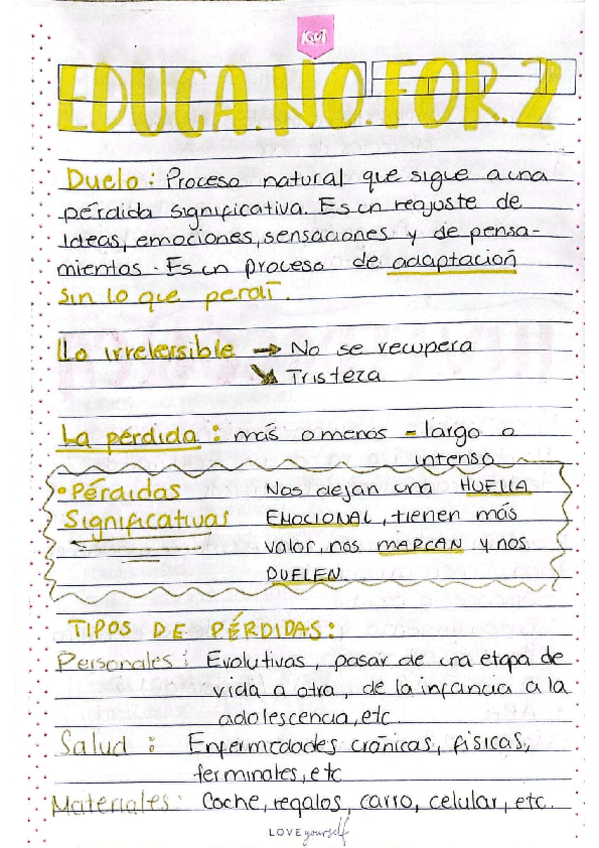 EDUCA.NO.FOR.2
Duelo: Proceso natural que sigue a una
pérdida significativa. Es un reajuste de
ideas, emociones, sensaciones y de pensa-
mientos. Es un proceso de adaptación
sin lo que perdí.
Lo irreversible → No se recupera
↘ Tristeza
La pérdida: más o menos = largo o
intenso
• Pérdidas Nos dejan una HUELLA
Significativas EMOCIONAL, tienen más
valor, nos MARCAN y nos
DUELEN.
TIPOS DE PÉRDIDAS:
Personales: Evolutivas, pasar de una etapa de
vida a otra, de la infancia a la
adolescencia, etc.
Salud: Enfermedades crónicas, físicas,
terminales, etc
Materiales: Coche, regalos, carro, celular, etc.
LOVE yourself